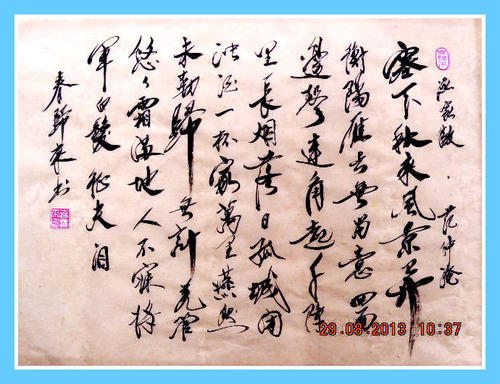 渔家傲·范仲淹
塞下秋来风景异
衡陽雁去無留意四面
邊聲連角起千嶂
里長烟落日孤城闭
浊酒一杯家萬里燕然
未勒歸無計羌管
悠々霜滿地人不寐将
軍白髮征夫泪
春歸来书
29.08.2013 10:37